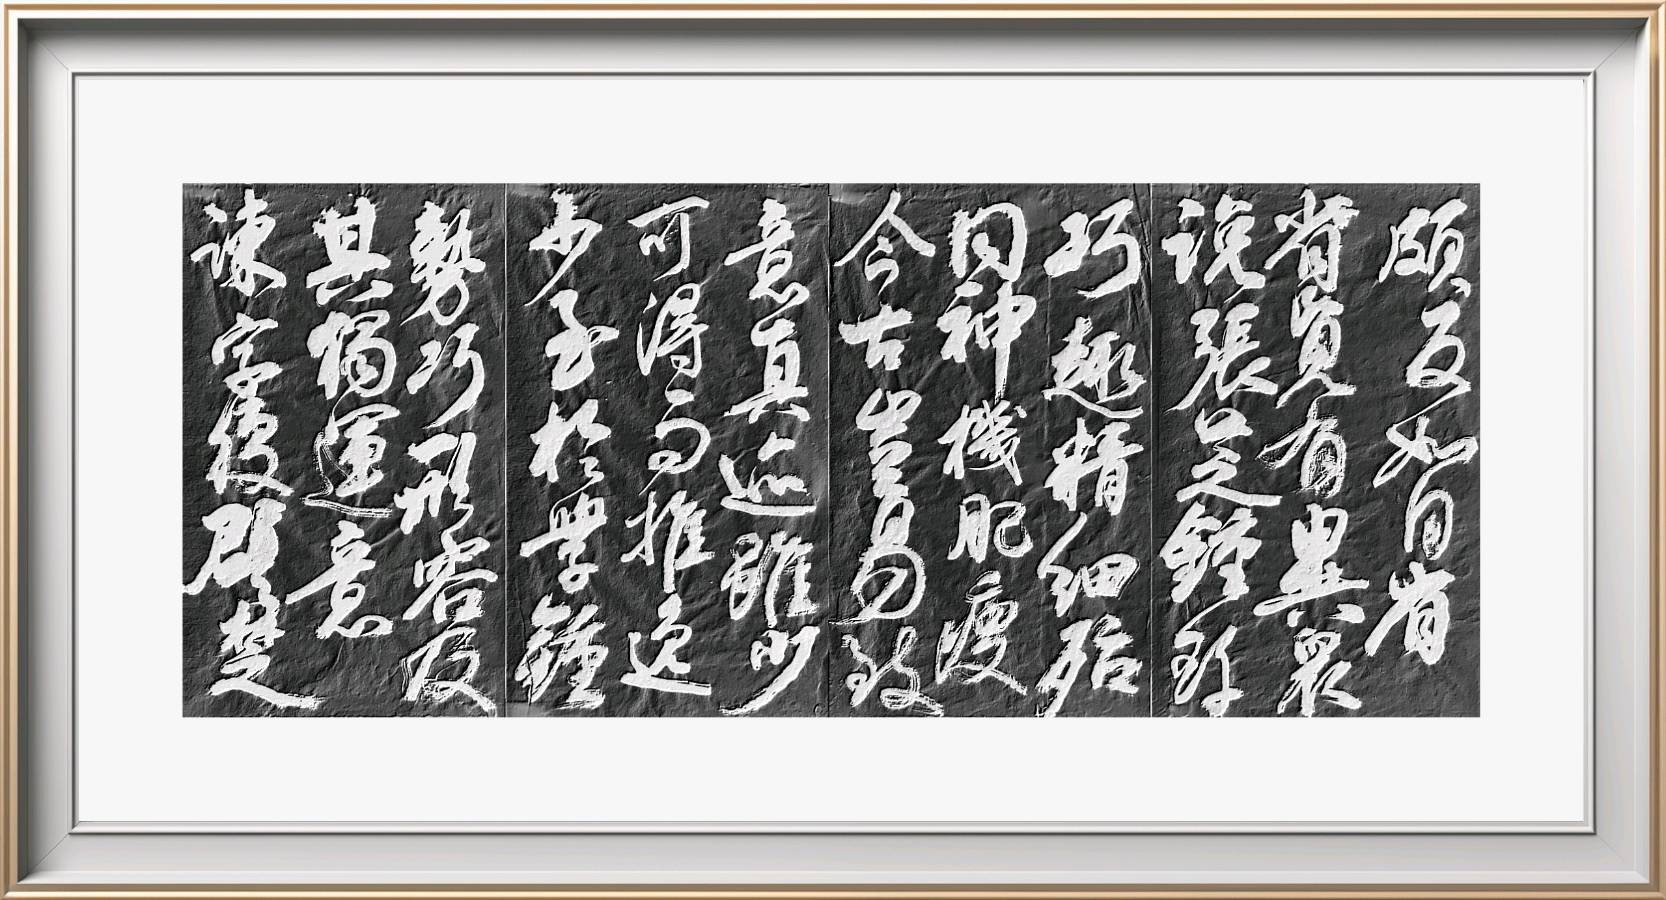 頗反如自省
省覽有異衆
說張芝鍾繇
巧趣精細殆
同神機肥瘦
今古豈易致
意真迹雖少
可得而推逸
少至於學鍾
勢巧形容及
其獨運意
疎字緩譬楚